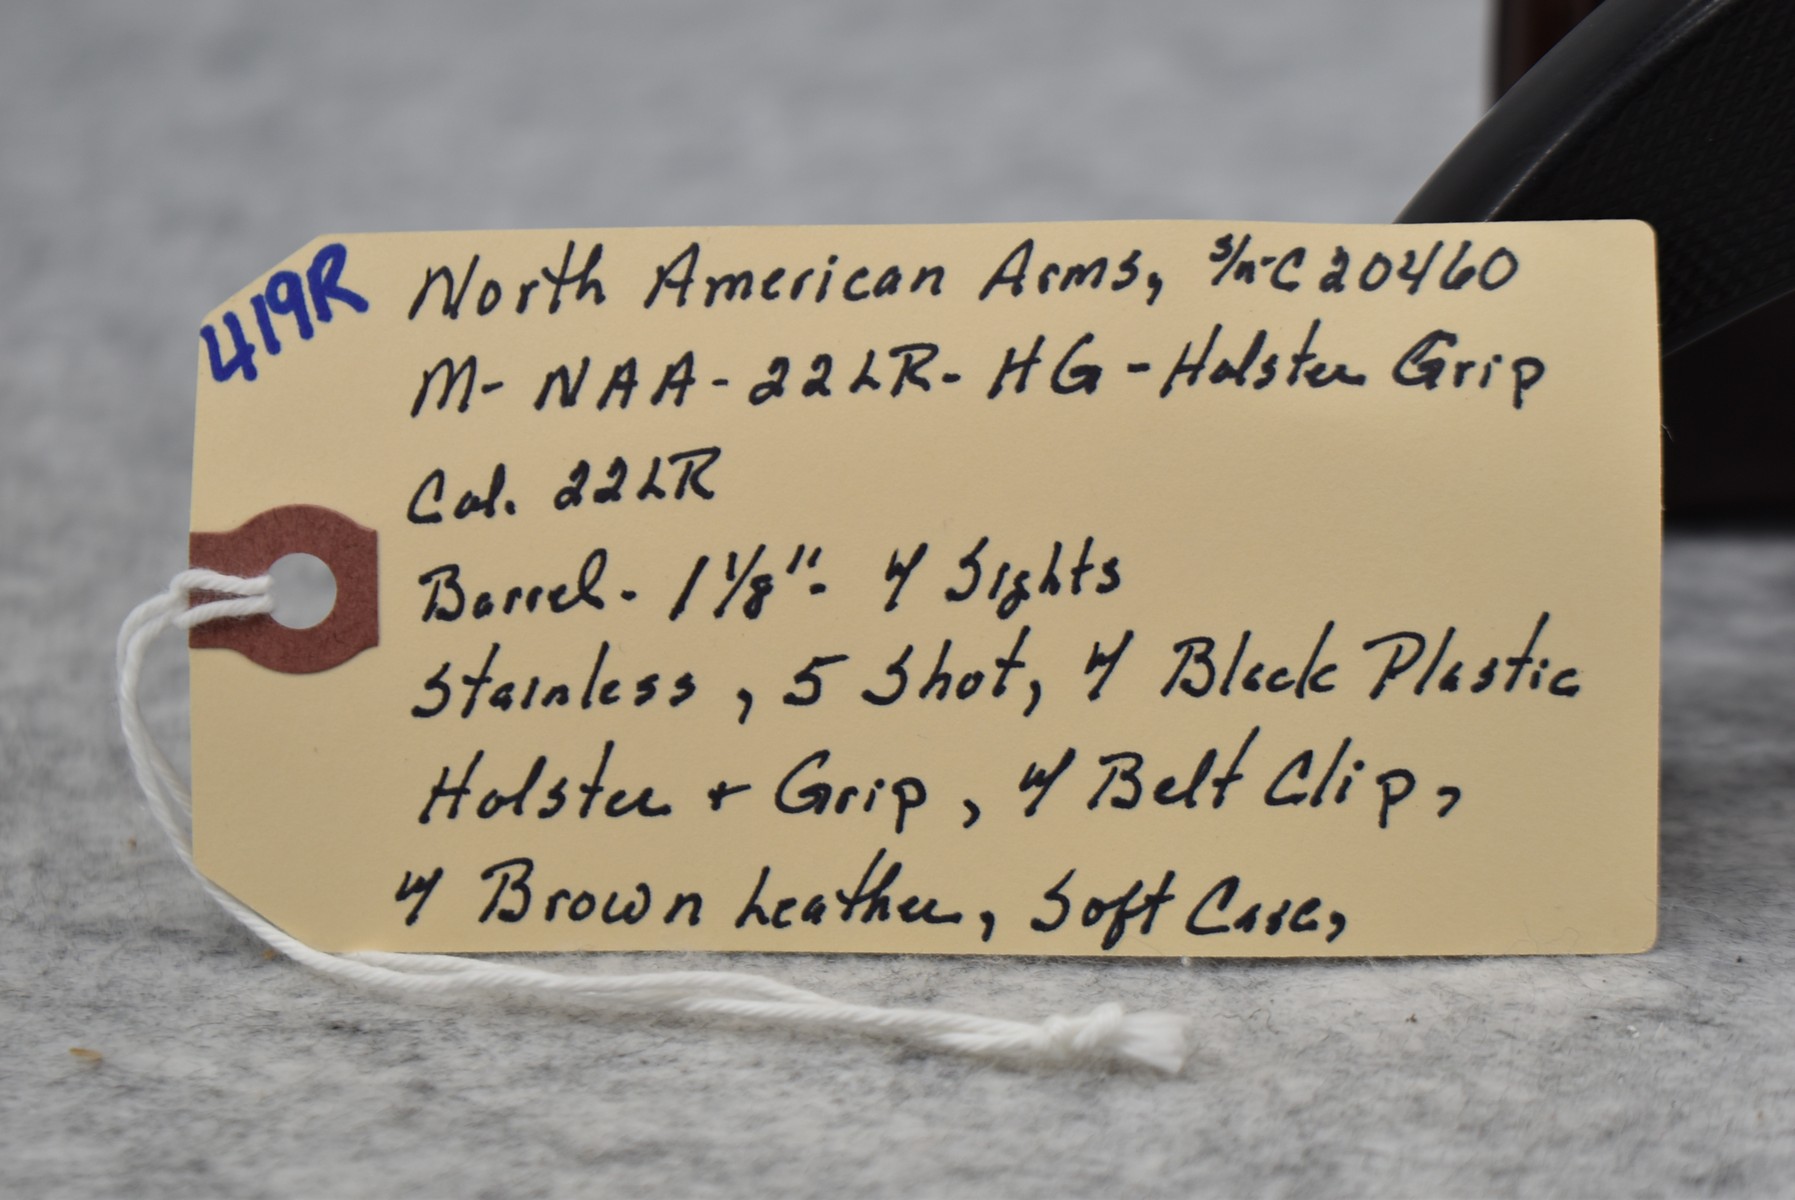 419R
North American Arms, S/n-C20460
M- NAA-22LR-HG-Holster Grip
Cal. 22LR
Barrel- 1 1/8"- w/ Sights
Stainless, 5 Shot, w/ Black Plastic
Holster + Grip, w/ Belt Clip,
w/ Brown Leather, Soft Case,